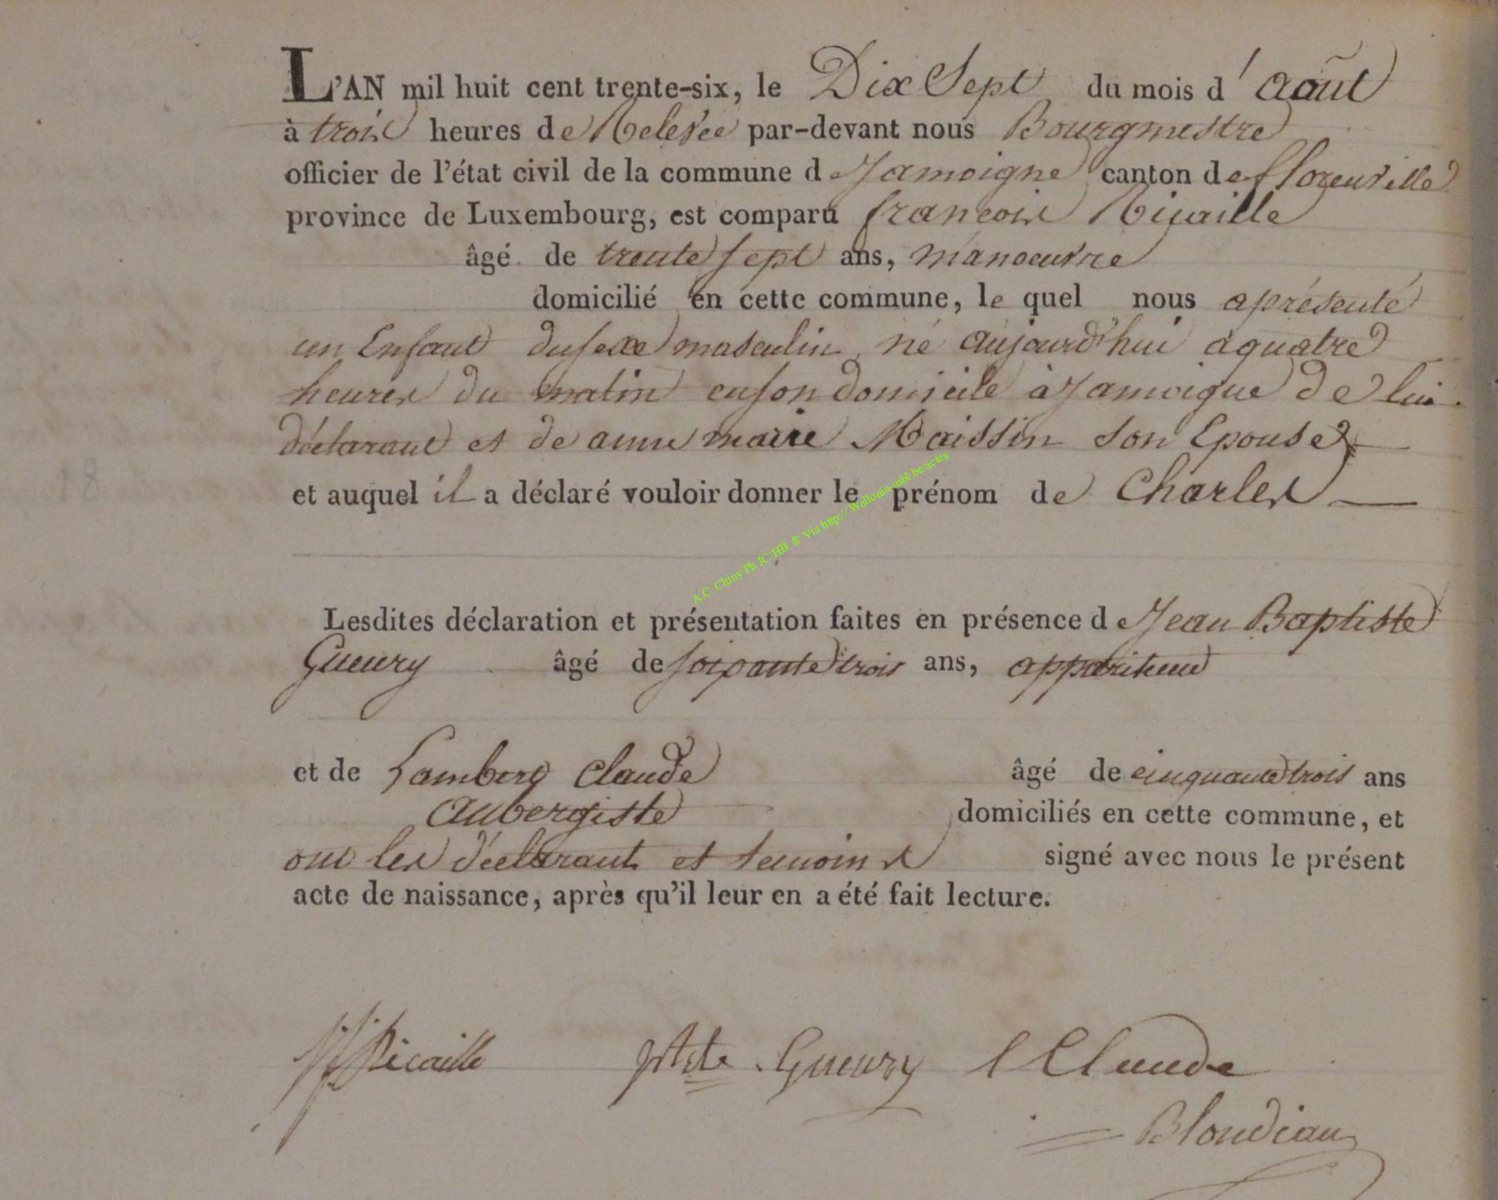 L'AN mil huit cent trente-six, le Dix Sept du mois d'août
à trois heures de Relevée par-devant nous Bourgmestre
officier de l'état civil de la commune de Jamoigne canton de florenville
province de Luxembourg, est comparu françois Ricaille
âgé de trente sept ans, manoeuvre
domicilié en cette commune, le quel nous aprésenté
un Enfant dusexe masculin, né aujourd'hui aquatre
heures du matin enson domicile à Jamoigne de lui
déclarant et de anne marie Maissin son Epouse
et auquel il a déclaré vouloir donner le prénom de Charles
A C Chiny Ph IC/HB ® Via http://
Lesdites déclaration et présentation faites en présence de Jean Baptiste
Gueury âgé de soixante trois ans, appariteur
et de Lambert Claude âgé de cinquante trois ans
aubergiste domiciliés en cette commune, et
ont les déclarant et temoins signé avec nous le présent
acte de naissance, après qu'il leur en a été fait lecture.
Ricaille Gueury l Claude
Blondiau